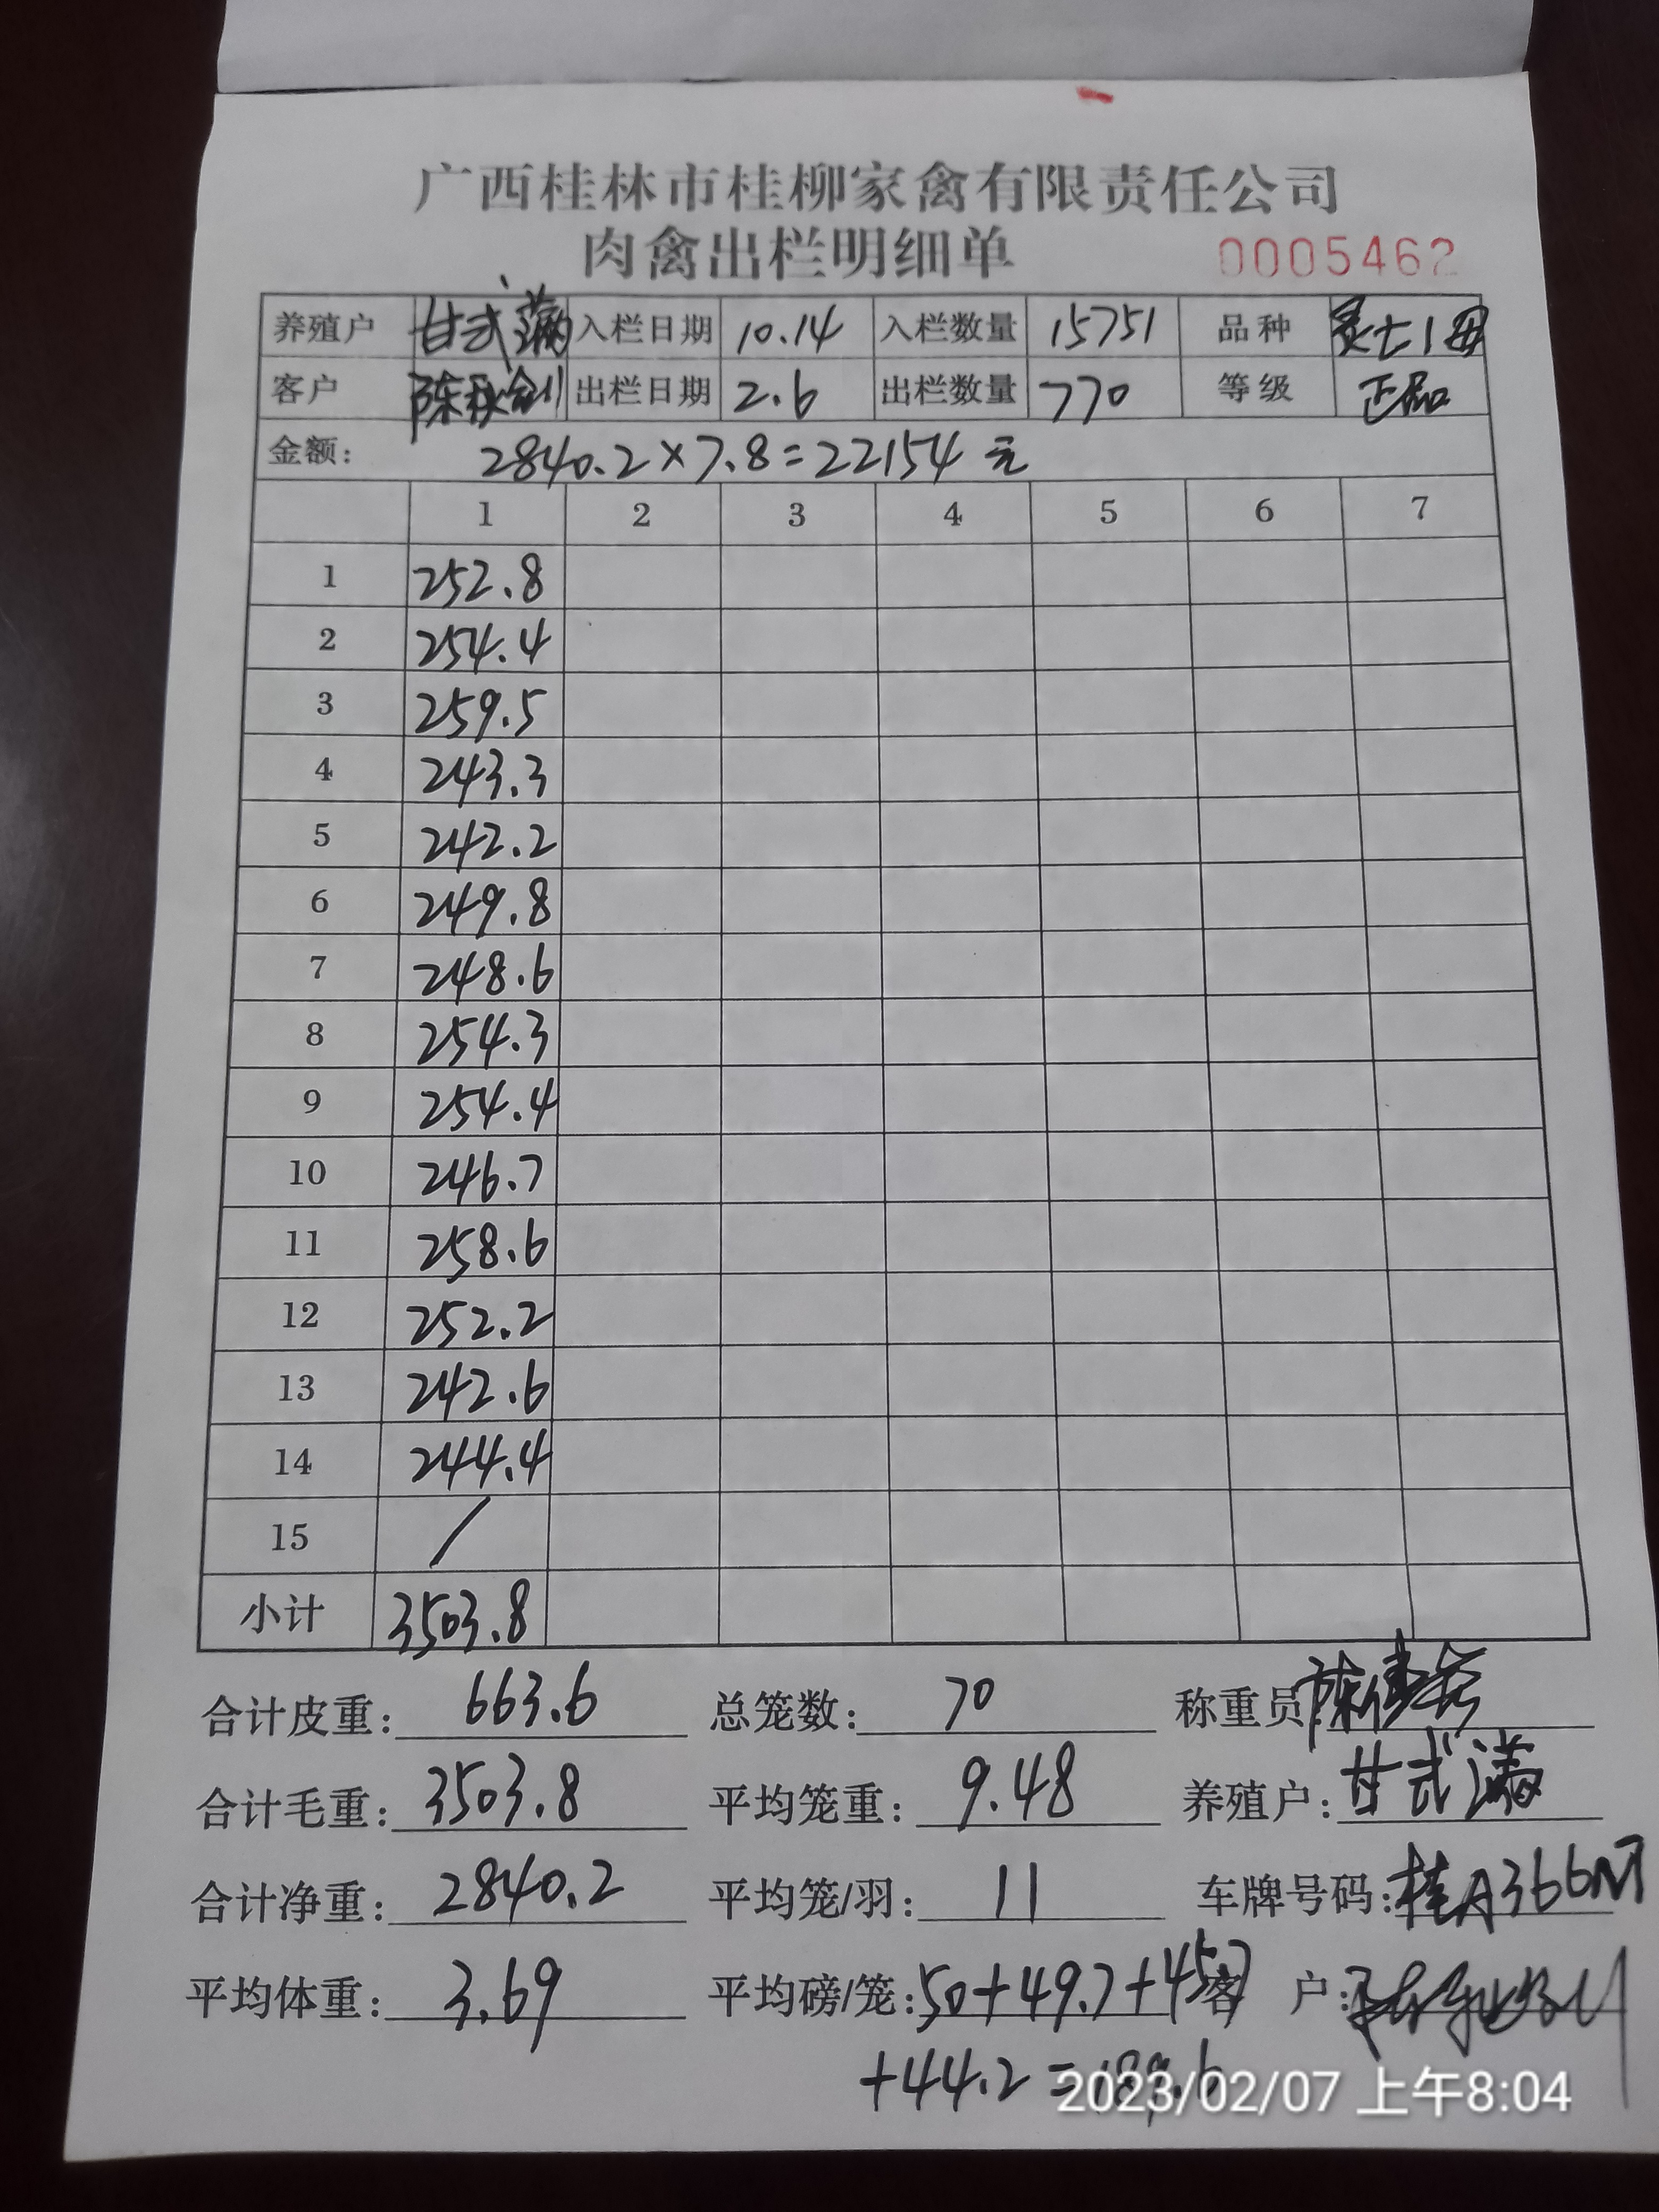 广西桂林市桂柳家禽有限责任公司
肉禽出栏明细单 0005462
养殖户 甘武满 入栏日期 10.14 入栏数量 15751 品种
客户 出栏日期 2.6 出栏数量 770 等级 正品
金额: 2840.2×7.8=22154元
1 2 3 4 5 6 7
1 252.8
2 254.4
3 259.5
4 243.3
5 242.2
6 249.8
7 248.6
8 254.3
9 254.4
10 246.7
11 258.6
12 252.2
13 242.6
14 244.4
15 /
小计 3503.8
合计皮重: 663.6 总笼数: 70 称重员:
合计毛重: 3503.8 平均笼重: 9.48 养殖户: 甘武满
合计净重: 2840.2 平均笼/羽: 11 车牌号码:
平均体重: 3.69 平均磅/笼: 50+49.7+45.7 客户:
+44.2=189.6
2023/02/07 上午8:04